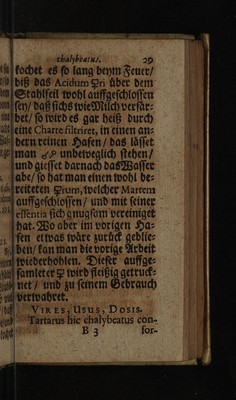 chalybeatus. 29
kochet es so lang beym Feuer/
biß das Acidum ♀ri über dem
Stahlfeil wohl auffgeschlossen
sey/ daß sichs wie Milch verfär-
bet/ so wird es gar heiß durch
eine Charte filtriret, in einen an-
dern reinen Hafen/ das lässet
man unbeweglich stehen/
und giesset darnach das Wasser
abe/ so hat man einen wohl be-
reiteten ♀rum, welcher Martem
auffgeschlossen/ und mit seiner
essentia sich gnugsam vereiniget
hat. Wo aber im vorigen Ha-
fen etwas wäre zurück geblie-
ben/ kan man die vorige Arbeit
wiederhohlen. Dieser auffge-
samleter ♀ wird fleißig getruck-
net/ und zu seinem Gebrauch
verwahret.
VIRES, USUS, DOSIS.
Tartarus hic chalybeatus con-
B 3 for-